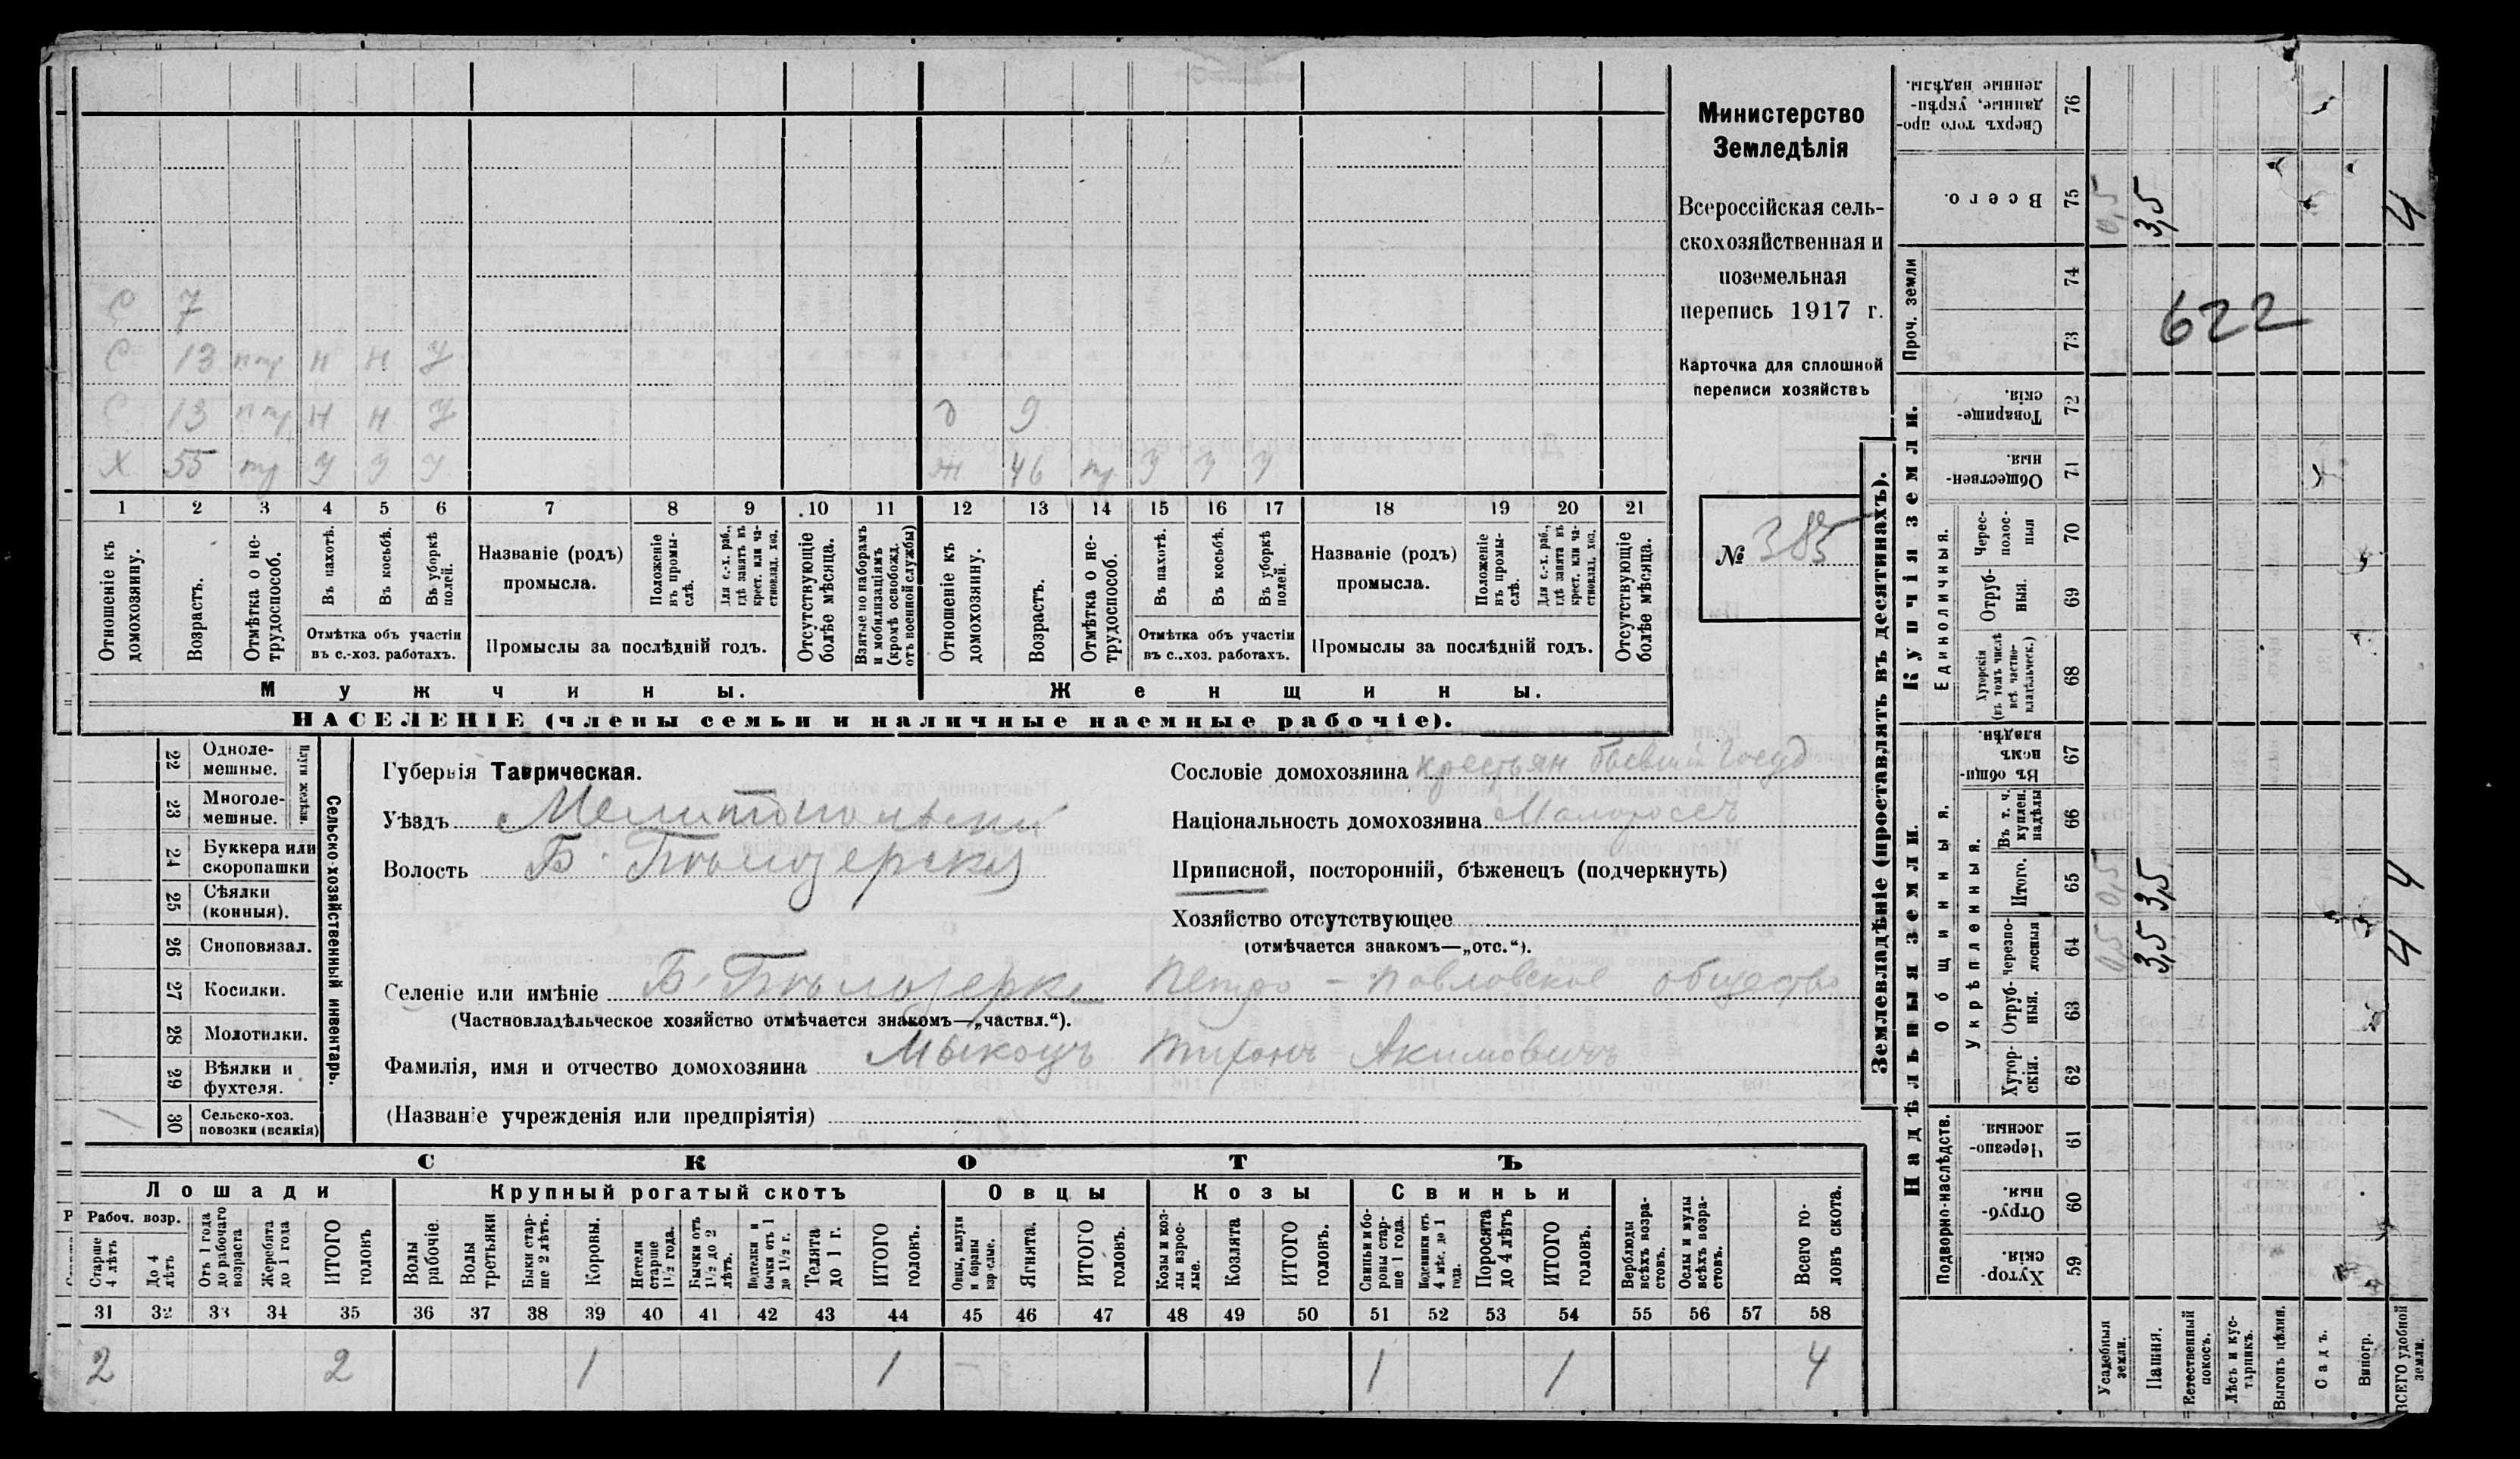 Министерство
Земледѣлія
Всероссійская сель-
скохозяйственная и
поземельная
перепись 1917 г.
Карточка для сплошной
переписи хозяйствъ
№ 385
С 7
С 13 ппр Н Н У
С 13 ппр Н Н У д 9
Х 55 пр У У У Ж 46 пр У У У
1 2 3 4 5 6 7 8 9 10 11 12 13 14 15 16 17 18 19 20 21
Отношеніе къ домохозяину.
Возрастъ.
Отмѣтка о не-трудоспособ.
Въ пахотѣ.
Въ косьбѣ.
Въ уборкѣ полей.
Отмѣтка объ участіи
въ с.-хоз. работахъ.
Названіе (родъ)
промысла.
Положеніе въ промы-слѣ.
Для с.-х. раб., гдѣ занятъ въ крест. или ча-стновлад. хоз.
Промыслы за послѣдній годъ.
Отсутствующіе болѣе мѣсяца.
Взятые по наборамъ и мобилизаціямъ (кромѣ освобожд. отъ военной службы)
Отношеніе къ домохозяину.
Возрастъ.
Отмѣтка о не-трудоспособ.
Въ пахотѣ.
Въ косьбѣ.
Въ уборкѣ полей.
Отмѣтка объ участіи
въ с.-хоз. работахъ.
Названіе (родъ)
промысла.
Положеніе въ промы-слѣ.
Для с.-х. раб., гдѣ занята въ крест. или ча-стновлад. хоз.
Промыслы за послѣдній годъ.
Отсутствующіе болѣе мѣсяца.
Мужчины.
Женщины.
НАСЕЛЕНІЕ (члены семьи и наличные наемные рабочіе).
22 Одноле-мешные.
23 Многоле-мешные.
Плуги желѣзн.
24 Буккера или скоропашки
25 Сѣялки (конныя).
26 Сноповязал.
27 Косилки.
28 Молотилки.
29 Вѣялки и фухтеля.
30 Сельско-хоз. повозки (всякія)
Сельско-хозяйственный инвентарь.
Губернія Таврическая.
Уѣздъ Мелитопольский
Волость Б. Бѣлозерская
Сословіе домохозяина крестьян бывший Госуд
Національность домохозяина Малороссъ
Приписной, посторонній, бѣженецъ (подчеркнуть)
Хозяйство отсутствующее
(отмѣчается знакомъ—„отс.“).
Селеніе или имѣніе Б. Бѣлозерка Петро-Павловское общество
(Частновладѣльческое хозяйство отмѣчается знакомъ—„частвл.“).
Фамилія, имя и отчество домохозяина Мыкоцъ Тихонъ Акимовичъ
(Названіе учрежденія или предпріятія)
СКОТЪ
Лошади
Крупный рогатый скотъ
Овцы
Козы
Свиньи
Рабоч. возр.
Старше 4 лѣтъ
До 4 лѣтъ
Отъ 1 года до рабочаго возраста
Жеребята до 1 года
ИТОГО головъ
Волы рабочіе.
Волы третьяки
Быки стар-ше 2 лѣтъ.
Коровы.
Нетели старше 1½ года.
Бычки отъ 1½ до 2 лѣтъ.
Подтелки и бычки отъ 1 до 1½ г.
Телята до 1 г.
ИТОГО головъ.
Овцы, валухи и бараны взрослые.
Ягнята.
ИТОГО головъ.
Козы и коз-лы взрос-лые.
Козлята
ИТОГО головъ.
Свиньи и бо-ровы стар-ше 1 года.
Подсвинки отъ 4 мѣс. до 1 года.
Поросята до 4 лѣтъ
ИТОГО головъ.
Верблюды всѣхъ возра-стовъ.
Ослы и мулы всѣхъ возра-стовъ.
Всего го-ловъ скота.
31 32 33 34 35 36 37 38 39 40 41 42 43 44 45 46 47 48 49 50 51 52 53 54 55 56 57 58
2 2 1 1 1 1 4
Землевладѣніе (проставлять въ десятинахъ).
Купчія земли.
Надѣльныя земли.
Сверхъ того про-данные, укрѣп-ленные надѣлы. 76
Всего. 75
Проч. земли 74 73
Товарище-скія. 72
Обществен-ныя. 71
Единоличныя.
Черес-полос-ныя 70
Отруб-ныя. 69
Хуторскія (въ томъ числѣ всѣ частно-владѣльческ.) 68
Общинныя.
Въ общин-номъ владѣн. 67
Укрѣпленныя.
Въ т. ч. куплен. надѣлы 66
Итого. 65
Черезпо-лосныя 64
Отруб-ныя. 63
Хутор-скія. 62
Подворно-наслѣдств.
Черезпо-лосныя. 61
Отруб-ныя. 60
Хутор-скія. 59
Усадебныя земли.
Пашня.
Естественный покосъ.
Лѣсъ и кус-тарникъ.
Выгонъ цѣлин.
Садъ.
Виногр.
ВСЕГО удобной земли.
0,5 3,5 4
622
0,5 3,5 4
0,5 3,5 4